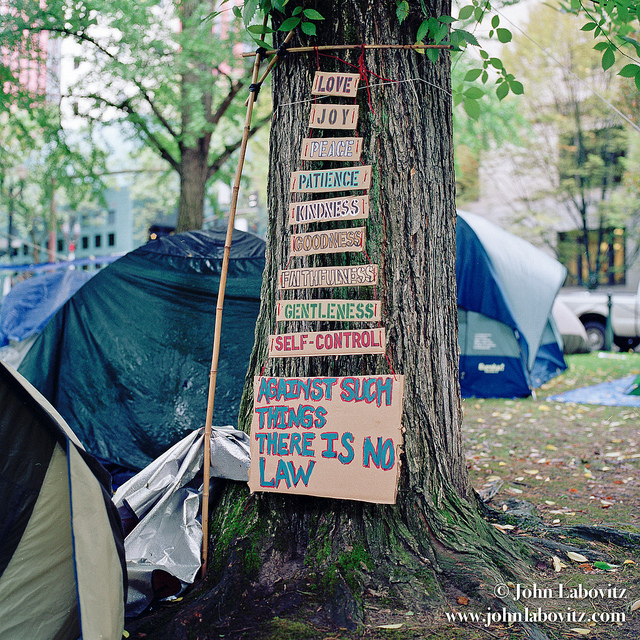 LOVE
JOY
PEACE
PATIENCE
KINDNESS
GOODNESS
FAITHFULNESS
GENTLENESS
SELF-CONTROL
AGAINST SUCH
THINGS
THERE IS NO
LAW
© John Labovitz
www.johnlabovitz.com